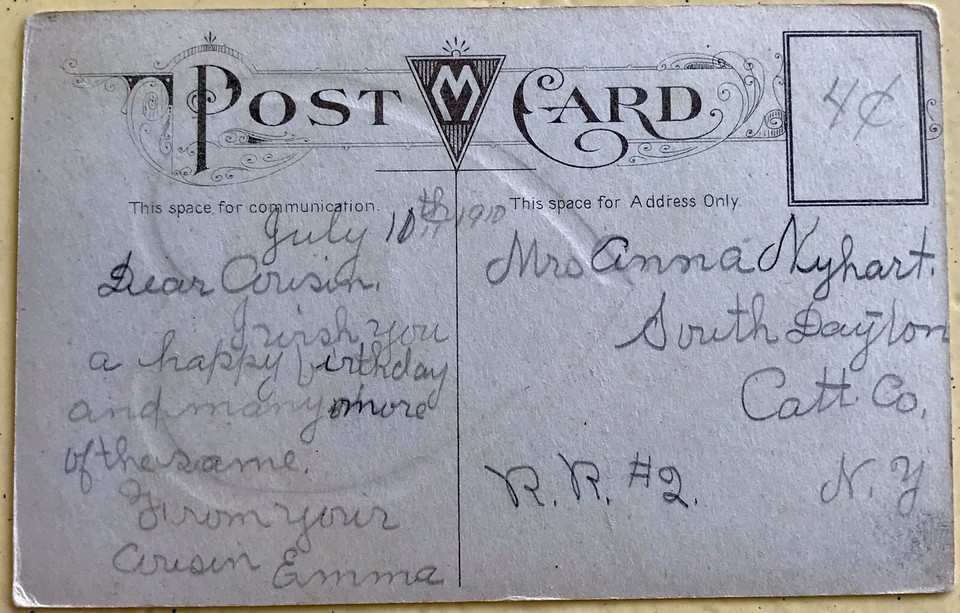 POST CARD
4¢
This space for communication.
This space for Address Only.
July 10th 1910
Dear Cousin,
I wish you
a happy birthday
and many more
of the same.
From your
Cousin Emma
Mrs Anna Nyhart.
South Dayton
Catt Co.
R. R. #2.
N. Y